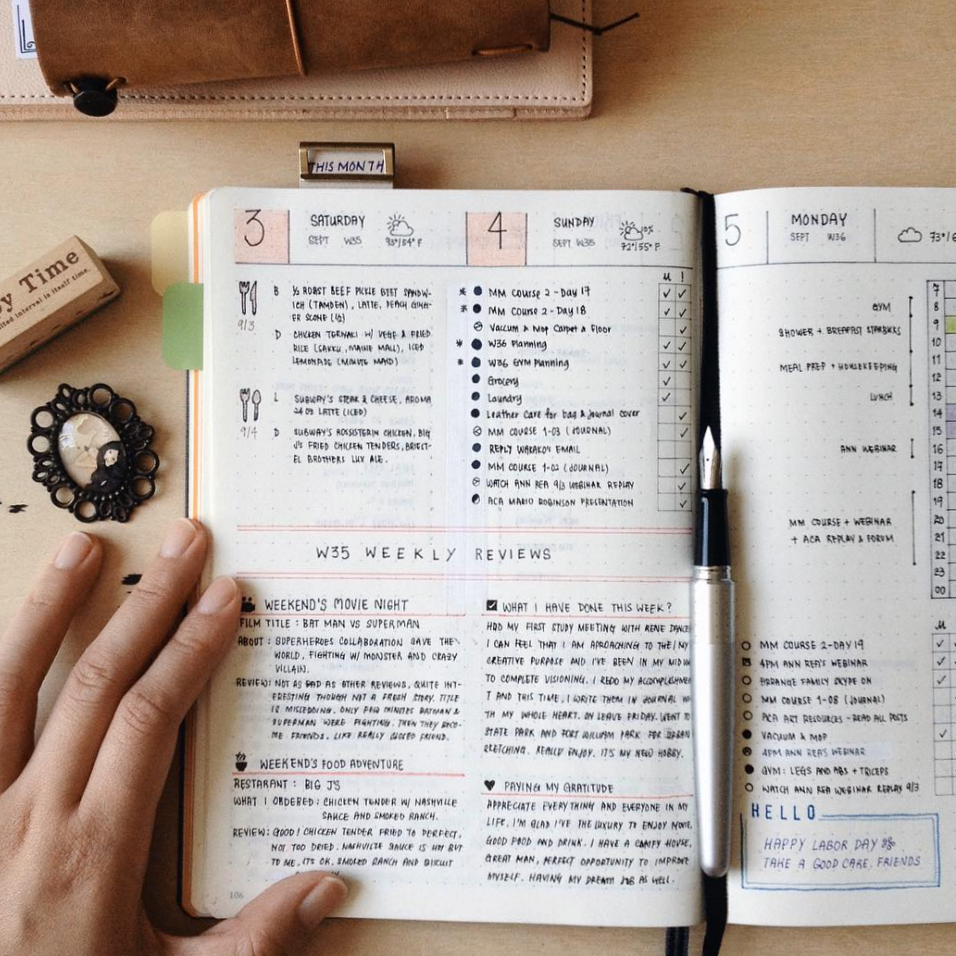 THIS MONTH
by Time
ited interval is itself time.
3
SATURDAY
SEPT W35
93°/64° F
4
SUNDAY
SEPT W35
72°/55° F
9/3
B ½ ROAST BEEF PICKLE BEET SANDW-
ICH (TAMDEN), LATTE, PEACH GING-
ER SCONE (½)
D CHICKEN TERIYAKI W/ VEGE & FRIED
RICE (SAKKU, MAINE MALL), ICED
LEMONADE (MINUTE MAID)
9/4
L SUBWAY'S STEAK & CHEESE, AROMA
24 OZ LATTE (ICED)
D SUBWAY'S ROSSISTERIN CHICKEN, BIG
J'S FRIED CHICKEN TENDERS, BRIEST-
EL BROTHERS LUX ALE.
M I
MM COURSE 2 - DAY 17
MM COURSE 2 - DAY 18
VACUUM & MOP CARPET & FLOOR
W36 PLANNING
W36 GYM PLANNING
GROCERY
LAUNDRY
LEATHER CARE FOR BAG & JOURNAL COVER
MM COURSE 1-03 (JOURNAL)
REPLY WARAKO'S EMAIL
MM COURSE 1-02 (JOURNAL)
WATCH ANN REA 9/3 WEBINAR REPLAY
ACA MARIO ROBINSON PRESENTATION
W35 WEEKLY REVIEWS
WEEKEND'S MOVIE NIGHT
FILM TITLE : BAT MAN VS SUPERMAN
ABOUT : SUPERHEROES COLLABORATION SAVE THE
WORLD, FIGHTING W/ MONSTER AND CRAZY
VILLAIN.
REVIEW: NOT AS BAD AS OTHER REVIEWS, QUITE INT-
ERESTING THOUGH NOT A FRESH STORY. TITLE
IS MISLEADING. ONLY FEW MINUTES BATMAN &
SUPERMAN WERE FIGHTING, THEN THEY BECO-
ME FRIENDS. LIKE REALLY GOOD FRIEND.
WEEKEND'S FOOD ADVENTURE
RESTARANT : BIG J'S
WHAT I ORDERED : CHICKEN TENDER W/ NASHVILLE
SAUCE AND SMOKED RANCH.
REVIEW: GOOD! CHICKEN TENDER FRIED TO PERFECT,
NOT TOO DRIED. NASHVILLE SAUCE IS HOT BUT
TO ME, IT'S OK. SMOKED RANCH AND BISCUIT
106
WHAT I HAVE DONE THIS WEEK?
HAD MY FIRST STUDY MEETING WITH RENE DANCE
I CAN FEEL THAT I AM APPROACHING TO THE MY
CREATIVE PURPOSE AND I'VE BEEN IN MY MID
TO COMPLETE VISIONING. I REDO MY ACCOMPLISHME
T AND THIS TIME, I WRITE THEM IN JOURNAL W
TH MY WHOLE HEART. ON LEAVE FRIDAY. WENT TO
STATE PARK AND FORT WILLIAM PARK FOR URBAN
SKETCHING. REALLY ENJOY. IT'S MY NEW HOBBY.
PAYING MY GRATITUDE
APPRECIATE EVERYTHING AND EVERYONE IN MY
LIFE. I'M GLAD I'VE THE LUXURY TO ENJOY MOVIE,
GOOD FOOD AND DRINK. I HAVE A COMFY HOUSE,
GREAT MAN, PERFECT OPPORTUNITY TO IMPROVE
MYSELF. HAVING MY DREAM JOB AS WELL.
5
MONDAY
SEPT W36
73°/6
GYM
SHOWER + BREAKFAST STARBUCKS
MEAL PREP + HOUSEKEEPING
LUNCH
ANN WEBINAR
MM COURSE + WEBINAR
+ ACA REPLAY & FORUM
7
8
9
10
11
12
13
14
15
16
17
18
19
20
21
22
23
00
M
MM COURSE 2-DAY 19
4PM ANN REA'S WEBINAR
ARRANGE FAMILY SKYPE ON
MM COURSE 1-08 (JOURNAL)
ACA ART RESOURCES - READ ALL POSTS
VACUUM & MOP
4PM ANN REA'S WEBINAR
GYM: LEGS AND ABS + TRICEPS
WATCH ANN REA WEBINAR REPLAY 9/3
HELLO
HAPPY LABOR DAY
TAKE A GOOD CARE, FRIENDS